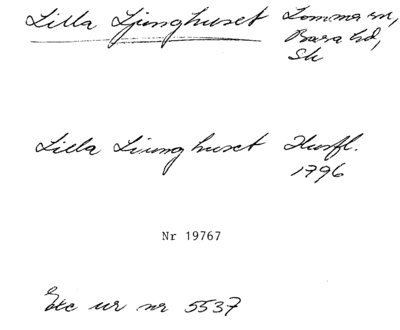 Lilla Ljunghuset Lomma sn,
Bara hd,
Sk
Lilla Liunghuset Husfl.
1796
Nr 19767
Exc ur nr 5537